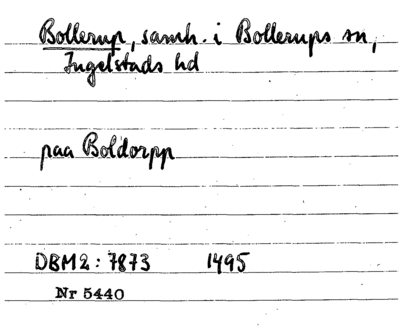 Bollerup, samh. i Bollerups sn,
Ingelstads hd
paa Boldorpp
DBM2: 7873 1495
Nr 5440